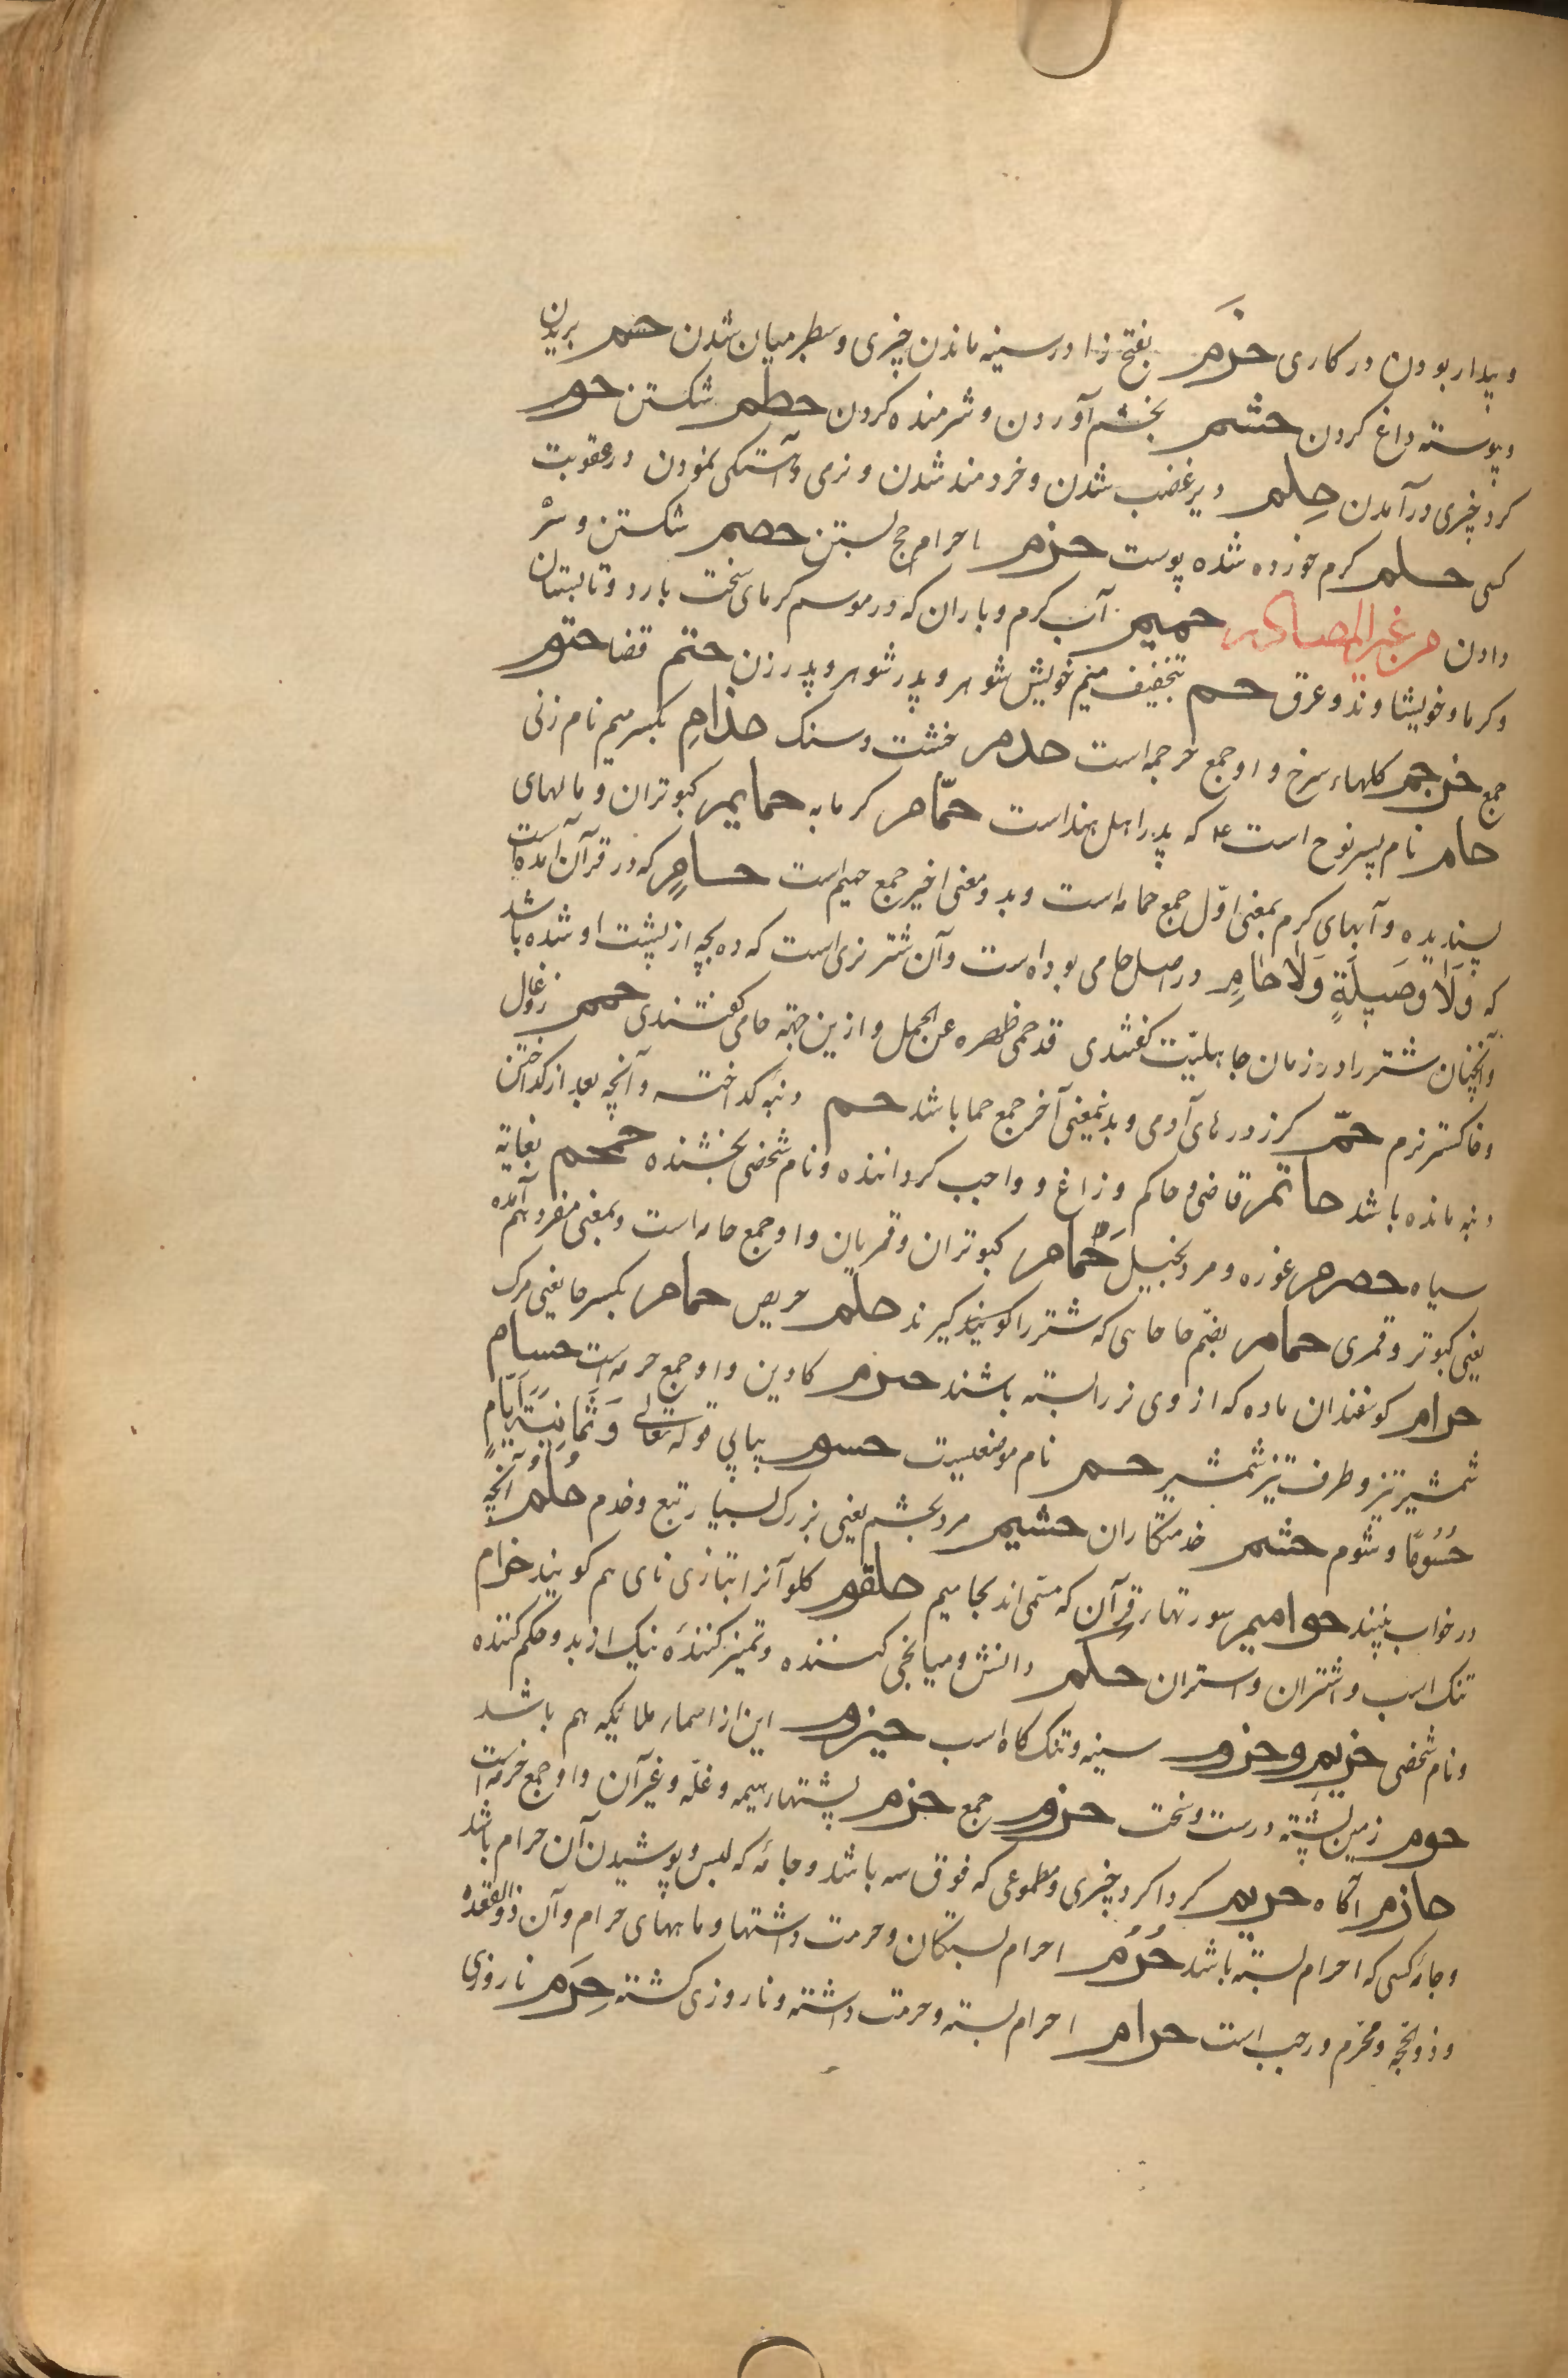 و بیدار بودن در کاری حَزَم بفتح زا در سینه ماندن چیزی و سطبر میان شدن حسم بریدن
و پیوسته داغ کردن حشم بخشم آوردن و شرمنده کردن حطم شکستن حوم
کرد چیزی درآمدن حِلم دیر غضب شدن و خردمند شدن و نرمی و آهستکی نمودن در عقوبت
کسی حلم کرم خورده شده پوست حرم احرام حج بستن حصم شکستن و سر
دادن من غیر المصادر حمیم آب کرم و باران که در موسم کرمای سخت بارد و تابستان
و کرما و خویشاوند و عرق حم بتخفیف میم خویش شوهر و پدر شوهر و پدر زن حتم قضا حتوم
جمع حرجم کلهاء سرخ و او جمع حرجمه است حدم خشت و سنک حذامِ بکسر میم نام زنی
حام نام پسر نوح است ع که پدر اهل هند است حمّام کرمابه حمایم کبوتران و مالهای
پسندیده و آبهای کرم بمعنی اوّل جمع حمامه است و بدو معنی اخیر جمع حمیم است حامٍ که در قرآن آمده است
که وَلَا وَصِیلَةٍ وَلَا حَامٍ در اصل حامی بوده است و آن شتر نری است که ده بچه از پشت او شده باشد
و آنچنان شتر را در زمان جاهلیّت کفتندی قد حمی ظهره عن الحمل و ازین جهة حامی کفتندی حمم زغال
و خاکستر نرم حمّ کرز در پای آدمی و بدینمعنی آخر جمع حما باشد حم دنبه کداخته و آنچه بعد از کداختن
دنبه مانده باشد حاتم قاضی و حاکم و زاغ و واجب کرداننده و نام شخصی بخشنده حمحم بغایة
سیاه حصرم غوره و مرد بخیل حَمام کبوتران و قمریان و او جمع حمامه است و بمعنی مفرد هم آمده
یعنی کبوتر و قمری حمام بضم حا حمایی که شتر را کویند کیرند حلم حریص حمام بکسر حا یعنی مرک
حرام کوسفندان ماده که از وی نر را بسته باشند حرم کاوین و او جمع حرمه است حسام
شمشیر تیز و طرف تیز شمشیر حسم نام موضعیست حسوم پیاپی قوله تعالی وَثَمَانِیَةَ أَیَّامٍ
حُسُومًا و شوم حشم خدمتکاران حشیم مرد بخشم یعنی بزرک بسیار تبع و خدم حُلُم آنچه
در خواب بینند حوامیم سورتهاء قرآن که مسمّی اند بحا میم حلقوم کلو آنرا بتازی نای هم کویند حزام
تنک اسب و اشتران و استران حَکَم دانش و میانجی کننده و تمیز کننده نیک از بد و حکم کننده
و نام شخصی حزیم و حزوم سینه و تنک کاه اسب حیزوم این از اسماء ملائکه هم باشد
حوم زمین پشته درست و سخت حزوم جمع حزم پشتهاء هیمه و غلّه و غیر آن و او جمع حزمه است
حازم آکاه حریم کرداکرد چیزی و مطموعی که فوق سه باشد و جامه که لبس و پوشیدن آن حرام باشد
و جامه کسی که احرام بسته باشد حُرُم احرام بستکان و حرمت داشتها و ماههای حرام و آن ذوالقعده
و ذوالحجّه و محرّم و رجب است حرام احرام بسته و حرمت داشته و ناروزی کشته حِرَم ناروزی